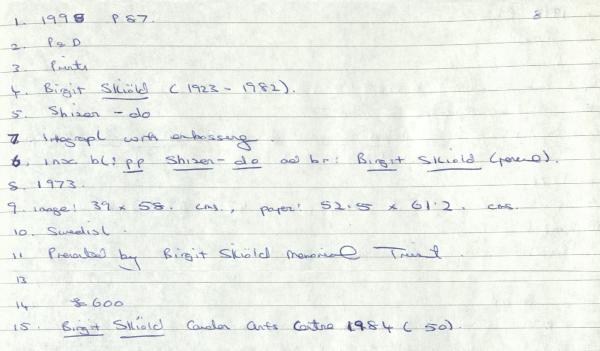 1. 1998 P 57.
2. P & D
3 Prints
4. Birgit Skiöld (1923 - 1982).
5. Shizen - do
7. Intagraph with embossing.
6. insc bl: pp Shizen - do and br: Birgit Skiold (pencil).
8. 1973.
9. image: 39 x 58. cms., paper: 52.5 x 61.2. cms.
10. Swedish.
11 Presented by Birgit Skiöld Memorial Trust.
13
14 £600
15. Birgit Skiöld Camden Arts Centre 1984 (50).